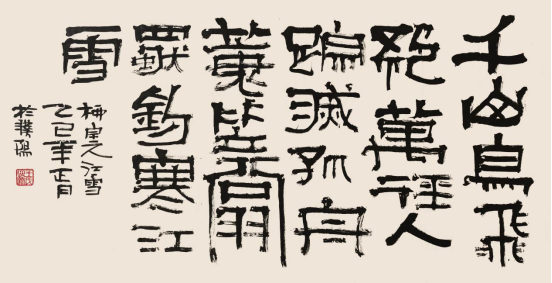 千山鳥飛
絕萬徑人
踪滅孤舟
蓑笠翁
獨釣寒江
雪
柳宗元江雪
乙巳年正月
於濮陽